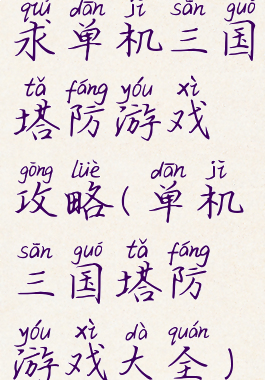 qiú dān jī sān guó
求单机三国
tǎ fáng yóu xì
塔防游戏
gōng lüè dān jī
攻略(单机
sān guó tǎ fáng
三国塔防
yóu xì dà quán
游戏大全)